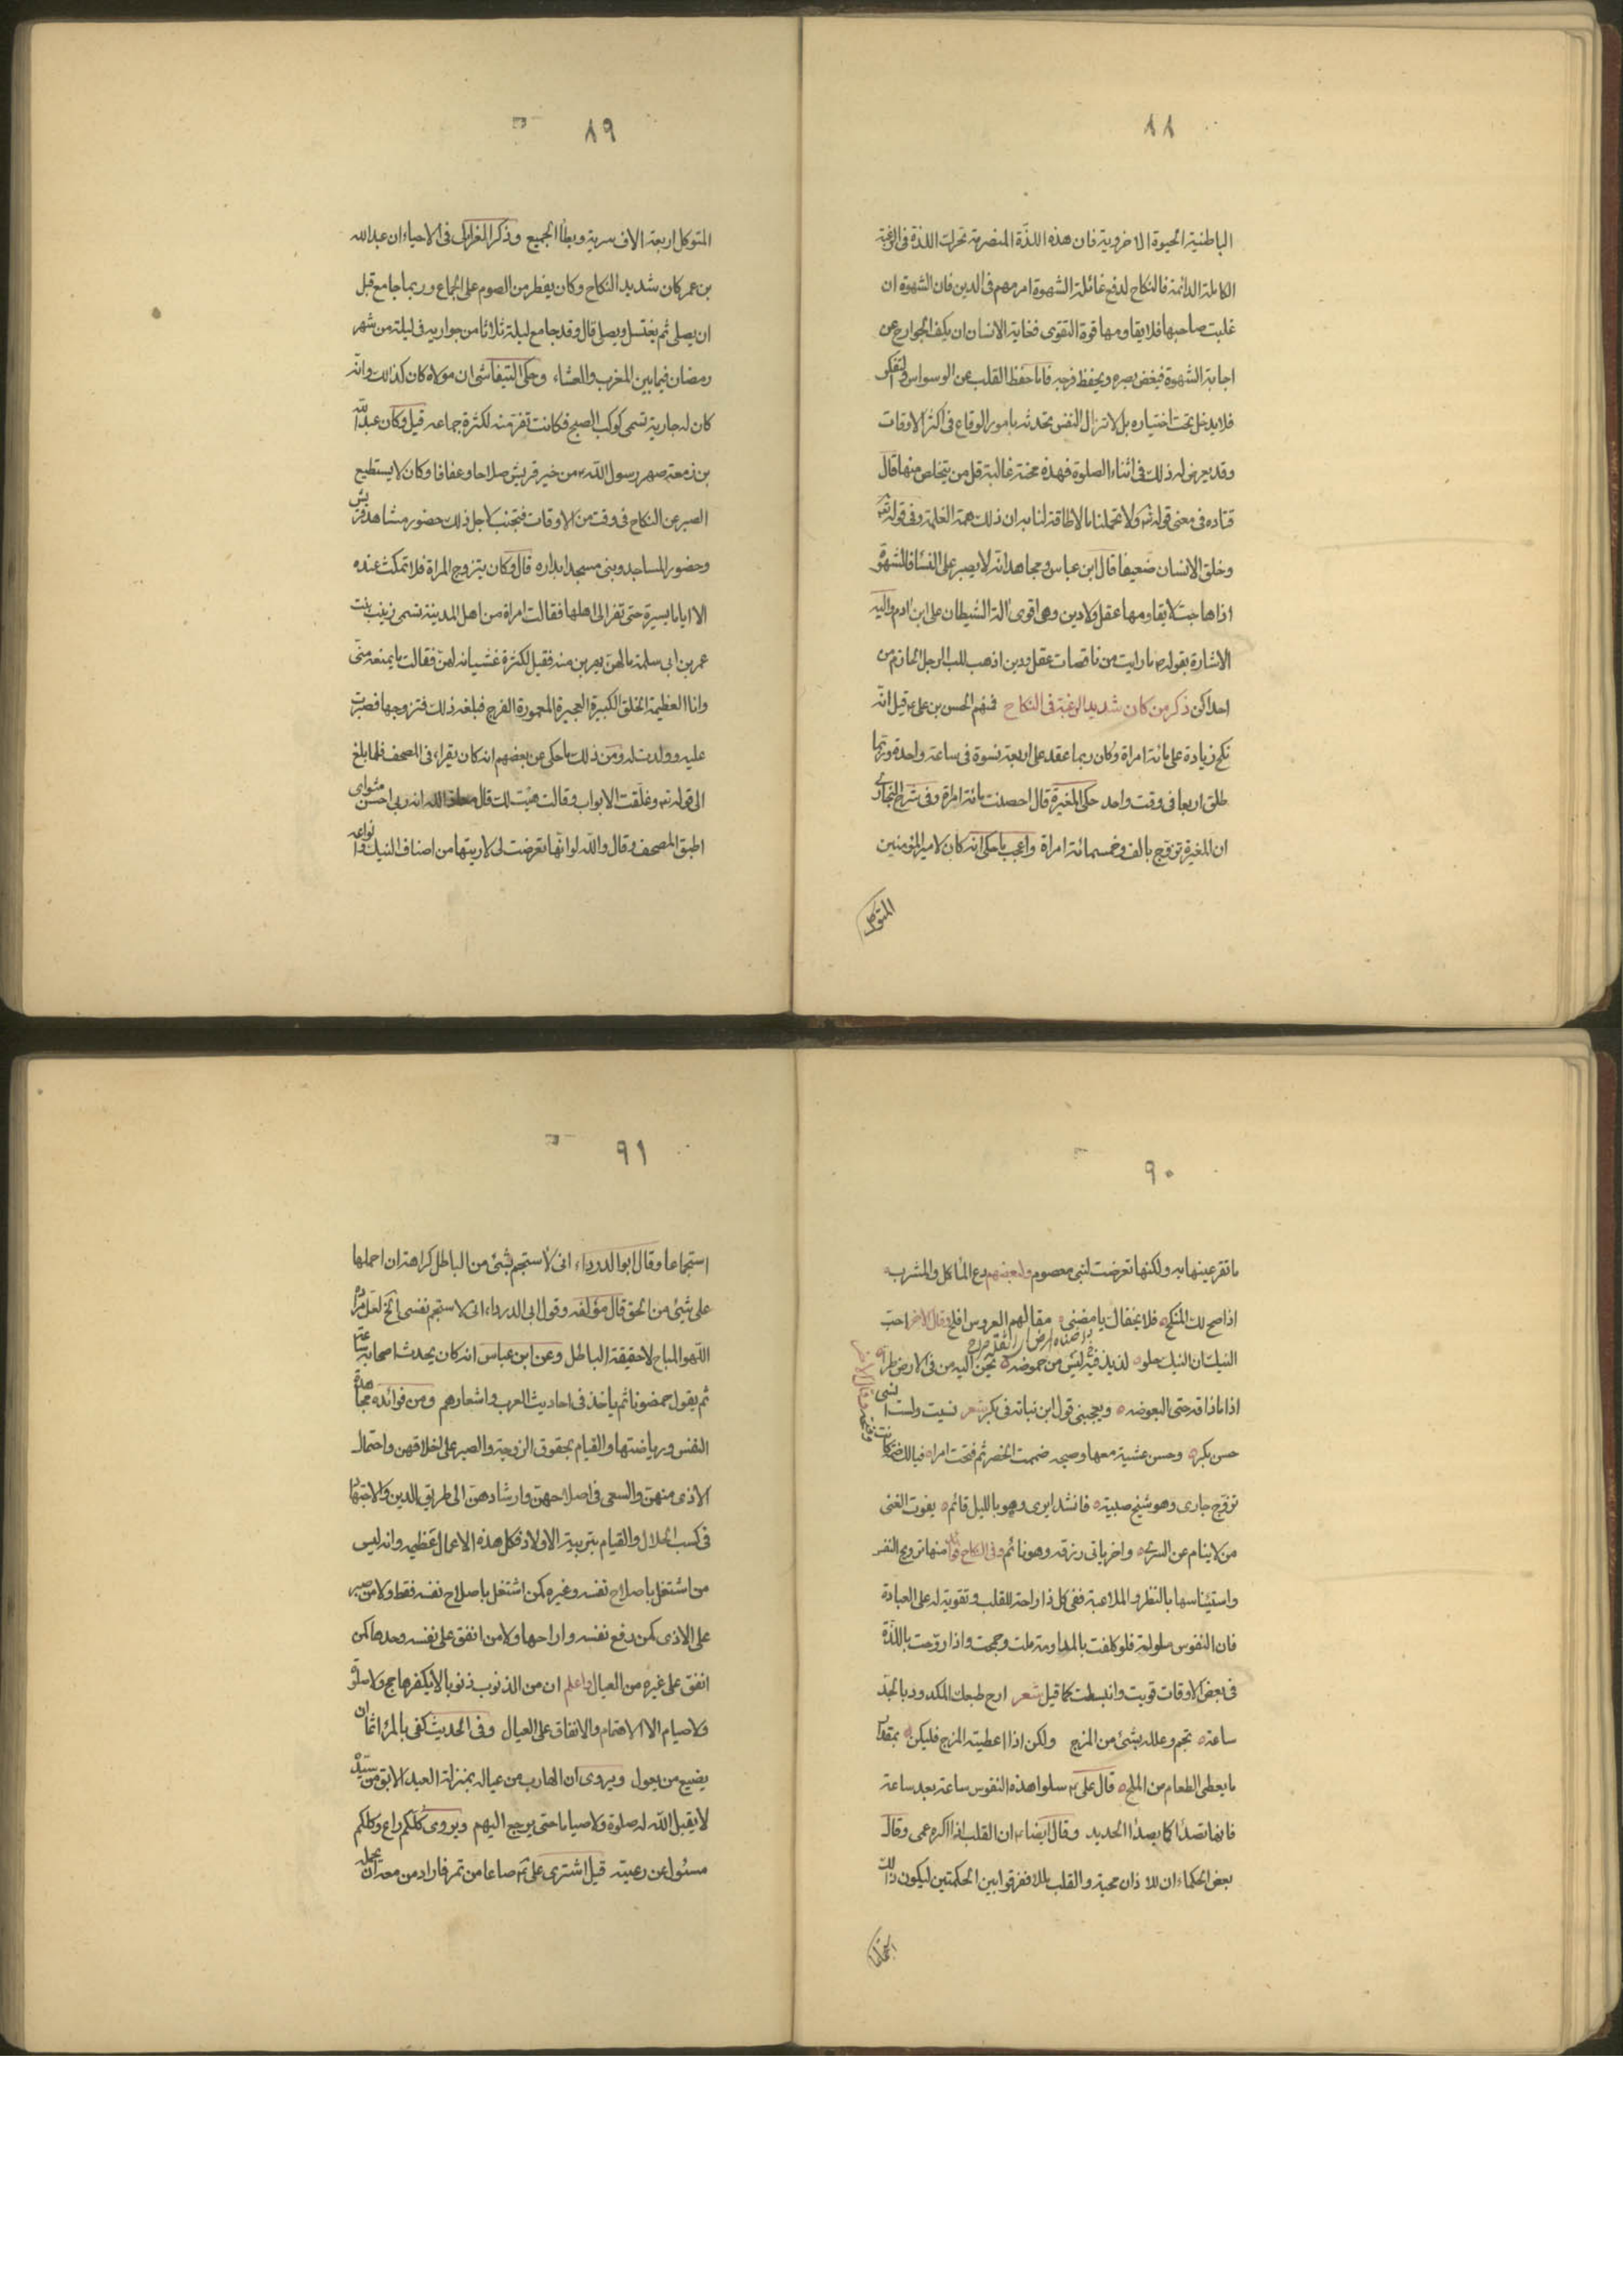 ٨٨
الباطنية الحيوة الاخروية فان هذه اللذّة المنصرمة تحرك اللذة فى الرغبة
الكاملة الدائمة فالنكاح لدفع غائلة الشهوة امر مهم فى الدين فان الشهوة ان
غلبت صاحبها فلا يقاومها قوة التقوى فغاية الانسان ان يكف الجوارح عن
اجابة الشهوة فيغض بصره ويحفظ فرجه فاما حفظ القلب عن الوسواس والتفكر
فلا يدخل تحت اختياره بل لا تزال النفس تحدثه بامور الوقاع فى اكثر الاوقات
وقد يعرض له ذلك فى اثناء الصلوة فهذه محنة غالبة قل من يتخلص منها قال
قتاده فى معنى قوله تع ولا تحملنا مالا طاقة لنا به ان ذلك هو الغلمة وفى قوله تع
وخلق الانسان ضعيفا قال ابن عباس ومجاهد انّه لا يصبر على النسا فالشهوة
اذا هاجت لا يقاومها عقل ولا دين وهى اقوى آلة الشيطان على ابن ادم واليه
الاشارة بقوله ص ما رايت من ناقصات عقل ودين اذهب للب الرجل الحازم من
احداكن ذكر من كان شديد الرغبة فى النكاح فمنهم الحسن بن على ع قيل انّه
نكح زيادة على مائة امراة وكان ربما عقد على اربعة نسوة فى ساعة واحدة وربما
طلق اربعا فى وقت واحد حكى المغيرة قال احصنت مائة امراة وفى شرح البخارى
ان المغيرة تزوج بالف وخمسمائة امراة واعجب ما حكى انه كان لامير المؤمنين
المتوكل
٨٩
المتوكل اربعة الاف سرية وطأ الجميع وذكر الغزالى فى الاحياء ان عبد الله
بن عمر كان شديد النكاح وكان يفطر من الصوم على الجماع وربما جامع قبل
ان يصلى ثم يغتسل ويصلى قال وقد جامع ليلة ثلاثا من جواريه فى ليلة من شهر
رمضان فيما بين المغرب والعشاء وحكى التيفاشى ان مولاه كان كذلك وانّه
كان له جارية تسمى كوكب الصبح فكانت تفر منه لكثرة جماعه قيل وكان عبد الله
بن زمعة صهر رسول الله ص من خير قريش صلاحا وعفافا وكان لا يستطيع
الصبر عن النكاح فى وقت من الاوقات فتجنب لاجل ذلك حضور مشاهد قريش
وحضور المساجد وبنى مسجدا بداره قال وكان يتزوج المراة فلا تمكث عنده
الا اياما يسيرة حتى تفر الى اهلها فقالت امراة من اهل المدينة تسمى زينب بنت
عمر بن ابى سلمة مالهنّ يهربن منه فقيل لكثرة غشيانه لهنّ فقالت ما يمنعه منّى
وانا العظيمة الخلق الكبيرة العجيزة المعمورة الفرج فبلغه ذلك فتزوجها فصبرت
عليه وولدت له ومن ذلك ما حكى عن بعضهم انه كان يقراء فى المصحف فلما بلغ
الى قوله تع وغلّقت الابواب وقالت هيت لك قال معاذ الله انه ربى احسن مثواى
اطبق المصحف وقال والله لو انّها تعرضت لى لاريتها من اصناف النيك وانواعه
٩٠
ما تقر عينها به ولكنها تعرضت لنبى معصوم ولبعضهم دع المأكل والمشرب
اذا صح لك المنكح فلا يخفاك يا مضنى مقالهم العروس افلح وقال الاخر احب
النيك ان النيك حلو لذيذ فيه ليس من حموضه تحن اليه من فى الارض طرا
اذا ماذاقه حتى البعوضه ويعجبنى قول ابن نباته فى بكر شعر نسيت ولست انسى
حسن بكر وحسن عشية معها وصبحه ضممت الخصر ثم فتحت امرا فيالك ضمة كانت وفتحه وقال الاخر
تزوج جارى وهو شيخ صبية فانشد ايرى وهو بالليل قائم يفوت الغنى
من لا ينام عن السرى واخر ياتى رزقه وهو نائم وفى النكاح فوائد منها ترويح النفس
واستيناسها بالنظر والملاعبة ففى كل ذا راحة للقلب وتقوية له على العبادة
فان النفوس ملولة فلو كلفت بالمداومة ملت وجمحت واذا روّحت باللّذة
فى بعض الاوقات قويت وانبسطت كما قيل شعر ارح طبعك المكدود بالجد
ساعة تجم وعلله بشئ من المزح ولكن اذا اعطيته المزح فليكن بمقدار
ما يعطى الطعام من الملح قال على ع سلوا هذه النفوس ساعة بعد ساعة
فانها تصدأ كما يصدأ الحديد وقال ايضا ع ان القلب اذا اكره عمى وقال
بعض الحكماء ان للاذان مجة والقلب مللا ففرقوا بين الحكمتين ليكون ذلك
٩١
استجماعا وقال ابو الدرداء انى لاستجم بشئ من الباطل كراهة ان احملها
على شئ من الحق قال مؤلفه وقول ابى الدرداء انى لاستجم نفسى الخ لعل مراده
اللهو المباح لا حقيقة الباطل وعن ابن عباس انه كان يحدث اصحابه ساعة
ثم يقول حمضونا ثم ياخذ فى احاديث العرب واشعارهم ومن فوائده مجاهدة
النفس ورياضتها والقيام بحقوق الزوجة والصبر على اخلاقهن واحتمال
الاذى منهن والسعى فى اصلاحهن وارشادهنّ الى طريق الدين والاجتهاد
فى كسب الحلال والقيام بتربية الاولاد فكل هذه الاعمال عظيمه وانه ليس
من اشتغل باصلاح نفسه وغيره كمن اشتغل باصلاح نفسه فقط ولا من صبر
على الاذى كمن رفع نفسه واراحها ولا من انفق على نفسه وحدها كمن
انفق على غيره من العيال واعلم ان من الذنوب ذنوبا لا يكفرها حج ولا صلوة
ولا صيام الا الاهتمام والانفاق على العيال وفى الحديث كفى بالمرء اثما ان
يضيع من يعول ويروى ان الهارب من عياله بمنزلة العبد الابق من سيّده
لا يقبل الله له صلوة ولا صياما حتى يرجع اليهم ويروى كلّكم راع وكلكم
مسئول عن رعيته قيل اشترى على ع صاعا من تمر فاراد من معه ان يحمله